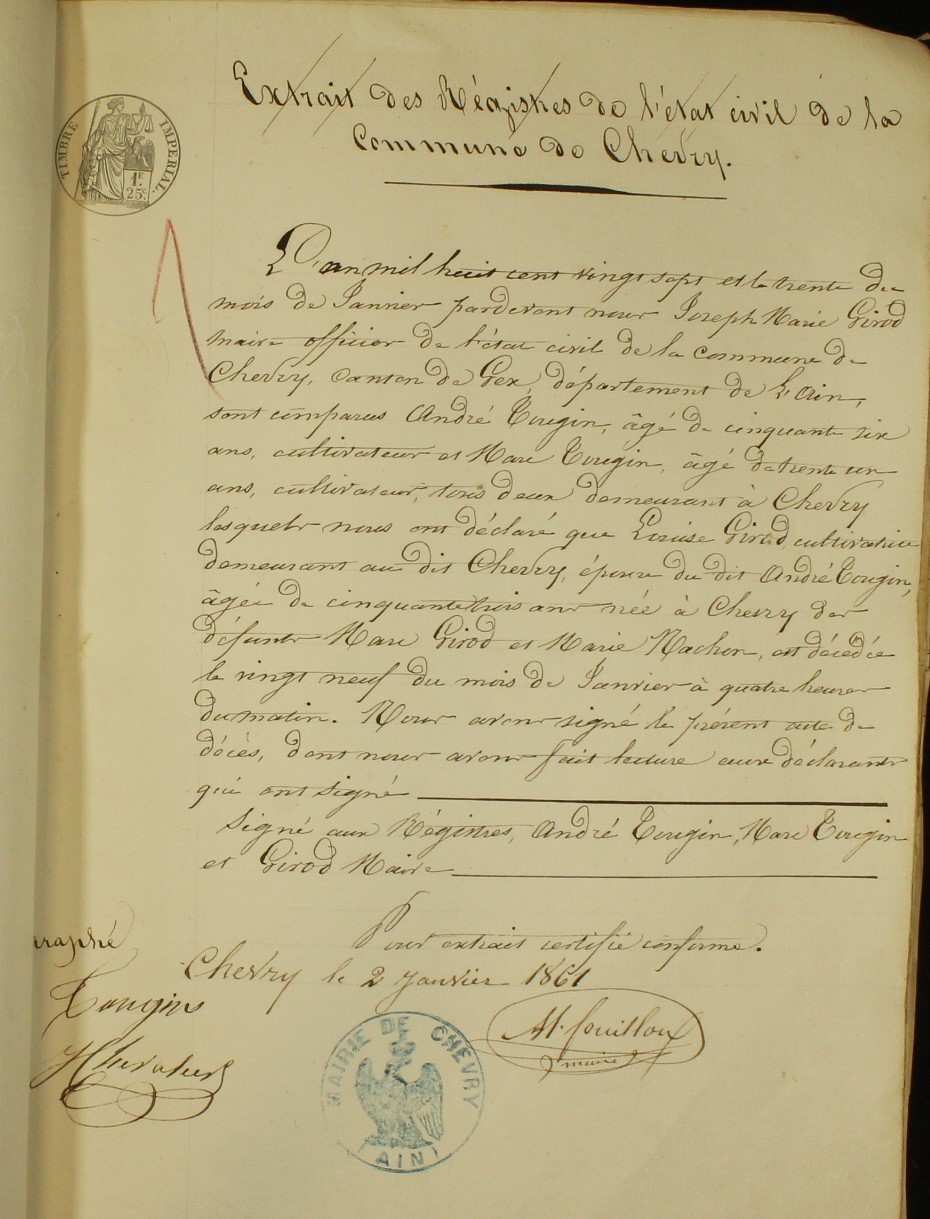 Extrait des Régistres de l'état civil de la
Commune de Chevry.
TIMBRE IMPERIAL.
1F.
25c.
L'an mil huit cent vingt sept et le trente du
mois de Janvier pardevant nous Joseph Marie Girod
maire officier de l'état civil de la commune de
Chevry, canton de Gex, département de L'Ain,
sont comparus André Tougin, âgé de cinquante six
ans, cultivateur et Marc Tougin, âgé de trente un
ans, cultivateur, tous deux demeurant à Chevry
lesquels nous ont déclaré que Louise Girod cultivatrice
demeurant au dit Chevry, épouse du dit André Tougin,
âgée de cinquante trois ans née à Chevry des
défunts Marc Girod et Marie Machon, est décédée
le vingt neuf du mois de Janvier à quatre heures
du matin. Nous avons signé le présent acte de
décès, dont nous avons fait lecture aux déclarants
qui ont signé
Signé aux Régistres, André Tougin, Marc Tougin
et Girod Maire
Pour extrait certifié conforme.
Chevry le 2 Janvier 1861
maire
Tougins
MAIRIE DE CHEVRY
(AIN)